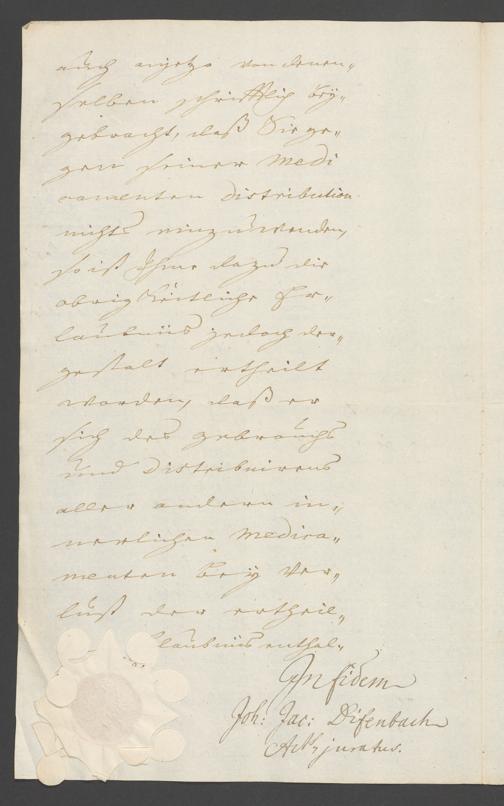 auch anjetzo von denen„
selben schrifftlich bey„
gebracht, daß Sie ge„
gen seiner Medi
camenten distribution
nichts einzuwenden,
so ist Ihme dazu die
obrigkeitliche Er„
laubniß jedoch der„
gestalt ertheilt
worden, daß er
sich des gebrauchs
und Distribuirens
aller andern in„
nerlichen Medica„
menten bey Ver„
lust der ertheil„
laubniis enthal„
In fidem
Joh: Jac: Difenbach
Acts juratus.